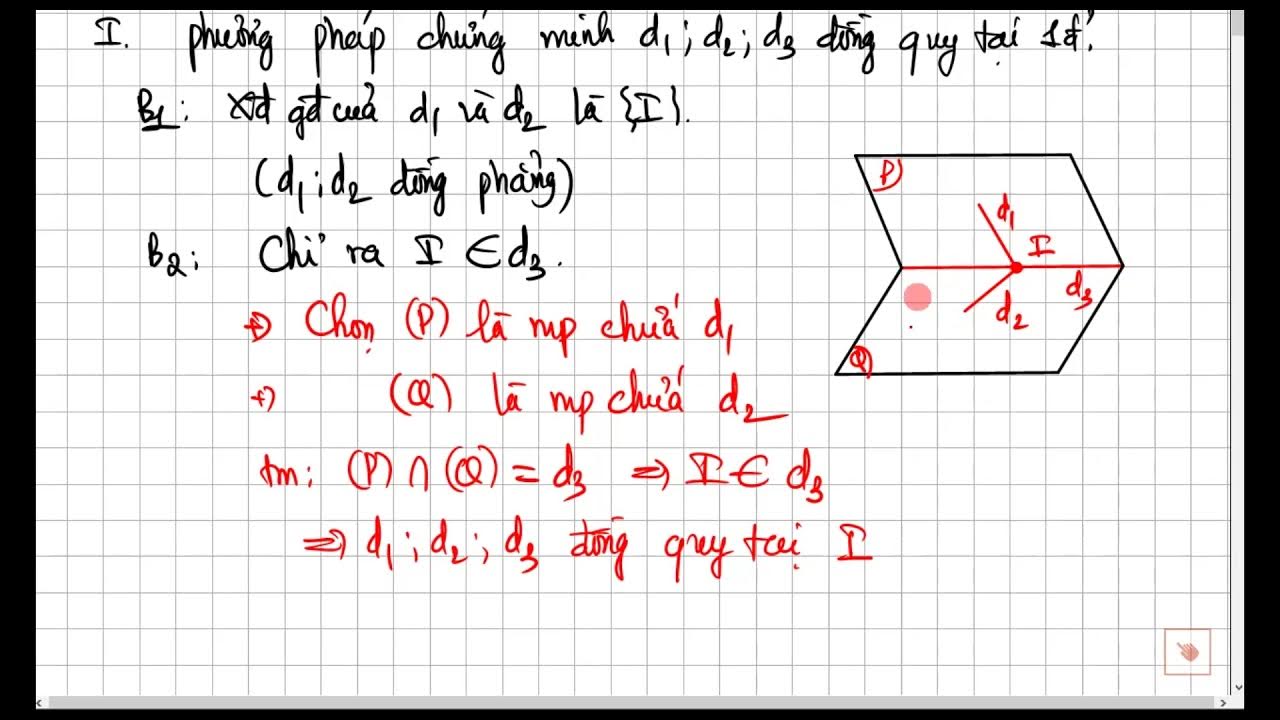 I. phương pháp chứng minh d₁; d₂; d₃ đồng quy tại 1đ'.
B1: xđ gđ của d₁ và d₂ là {I}.
(d₁; d₂ đồng phẳng)
B₂: Chỉ ra I ∈ d₃.
+) Chọn (P) là mp chứa d₁
+) (Q) là mp chứa d₂
tm: (P) ∩ (Q) = d₃ ⇒ I ∈ d₃
⇒ d₁; d₂; d₃ đồng quy tại I
P)
d₁
I
d₃
d₂
Q)